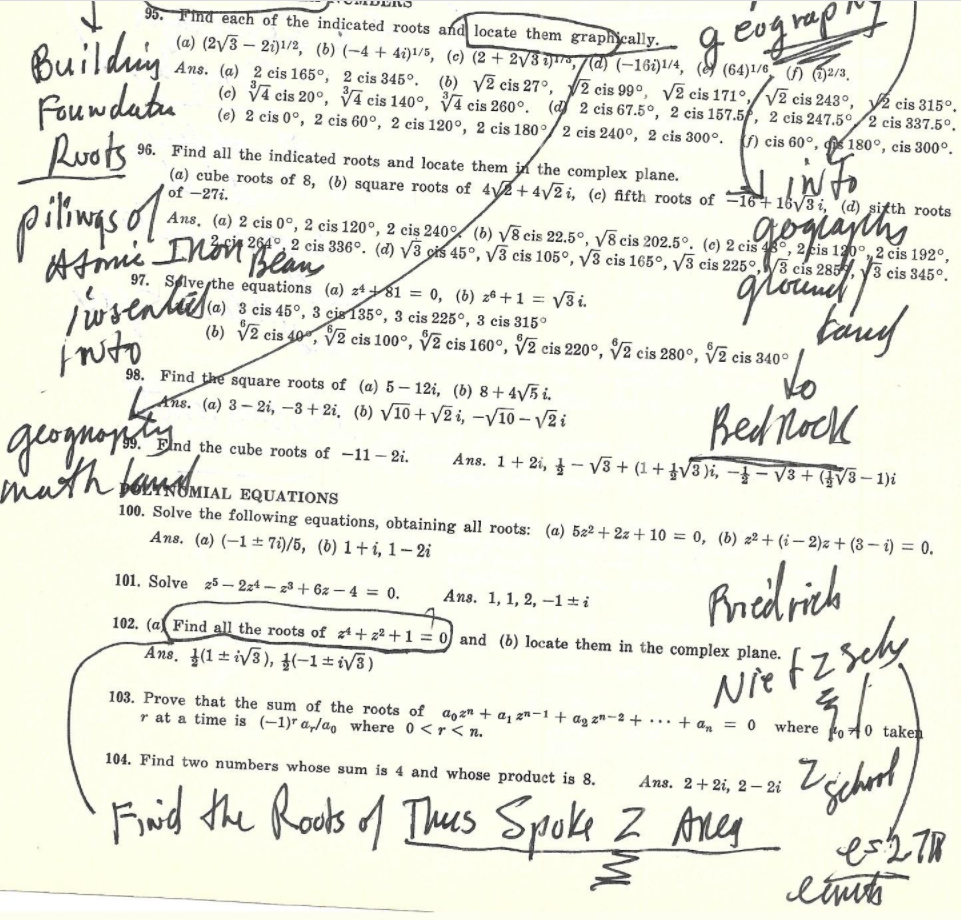 NUMBERS
95. Find each of the indicated roots and locate them graphically.
geography
(a) (2√3 − 2i)1/2, (b) (−4 + 4i)1/5, (c) (2 + 2√3 i)1/3, (d) (−16i)1/4, (e) (64)1/6, (f) (i)2/3.
Building
Ans. (a) 2 cis 165°, 2 cis 345°. (b) √2 cis 27°, √2 cis 99°, √2 cis 171°, √2 cis 243°, √2 cis 315°.
(c) ∛4 cis 20°, ∛4 cis 140°, ∛4 cis 260°. (d) 2 cis 67.5°, 2 cis 157.5°, 2 cis 247.5°, 2 cis 337.5°.
(e) 2 cis 0°, 2 cis 60°, 2 cis 120°, 2 cis 180°, 2 cis 240°, 2 cis 300°. (f) cis 60°, cis 180°, cis 300°.
Roots
96. Find all the indicated roots and locate them in the complex plane.
into
(a) cube roots of 8, (b) square roots of 4√2 + 4√2 i, (c) fifth roots of −16 + 16√3 i, (d) sixth roots
of −27i.
pilings of
Ans. (a) 2 cis 0°, 2 cis 120°, 2 cis 240°. (b) √8 cis 22.5°, √8 cis 202.5°. (c) 2 cis 48°, 2 cis 120°, 2 cis 192°,
2 cis 264°, 2 cis 336°. (d) √3 cis 45°, √3 cis 105°, √3 cis 165°, √3 cis 225°, √3 cis 285°, √3 cis 345°.
Atomic Iron Beam
ground
97. Solve the equations (a) z4 + 81 = 0, (b) z6 + 1 = √3 i.
(a) 3 cis 45°, 3 cis 135°, 3 cis 225°, 3 cis 315°
(b) ⁶√2 cis 40°, ⁶√2 cis 100°, ⁶√2 cis 160°, ⁶√2 cis 220°, ⁶√2 cis 280°, ⁶√2 cis 340°
into
98. Find the square roots of (a) 5 − 12i, (b) 8 + 4√5 i.
to
Ans. (a) 3 − 2i, −3 + 2i, (b) √10 + √2 i, −√10 − √2 i
BedRock
geography
99. Find the cube roots of −11 − 2i. Ans. 1 + 2i, ½ − √3 + (1 + ½√3)i, −½ − √3 + (½√3 − 1)i
math land
POLYNOMIAL EQUATIONS
100. Solve the following equations, obtaining all roots: (a) 5z2 + 2z + 10 = 0, (b) z2 + (i − 2)z + (3 − i) = 0.
Ans. (a) (−1 ± 7i)/5, (b) 1 + i, 1 − 2i
101. Solve z5 − 2z4 − z3 + 6z − 4 = 0. Ans. 1, 1, 2, −1 ± i
102. (a) Find all the roots of z4 + z2 + 1 = 0 and (b) locate them in the complex plane.
Ans. ½(1 ± i√3), ½(−1 ± i√3)
103. Prove that the sum of the roots of a0zn + a1 zn−1 + a2 zn−2 + ··· + an = 0 where a0 ≠ 0 taken
r at a time is (−1)r ar/a0 where 0 < r < n.
104. Find two numbers whose sum is 4 and whose product is 8. Ans. 2 + 2i, 2 − 2i
Z school
Find the Roots of Thus Spoke Z Area